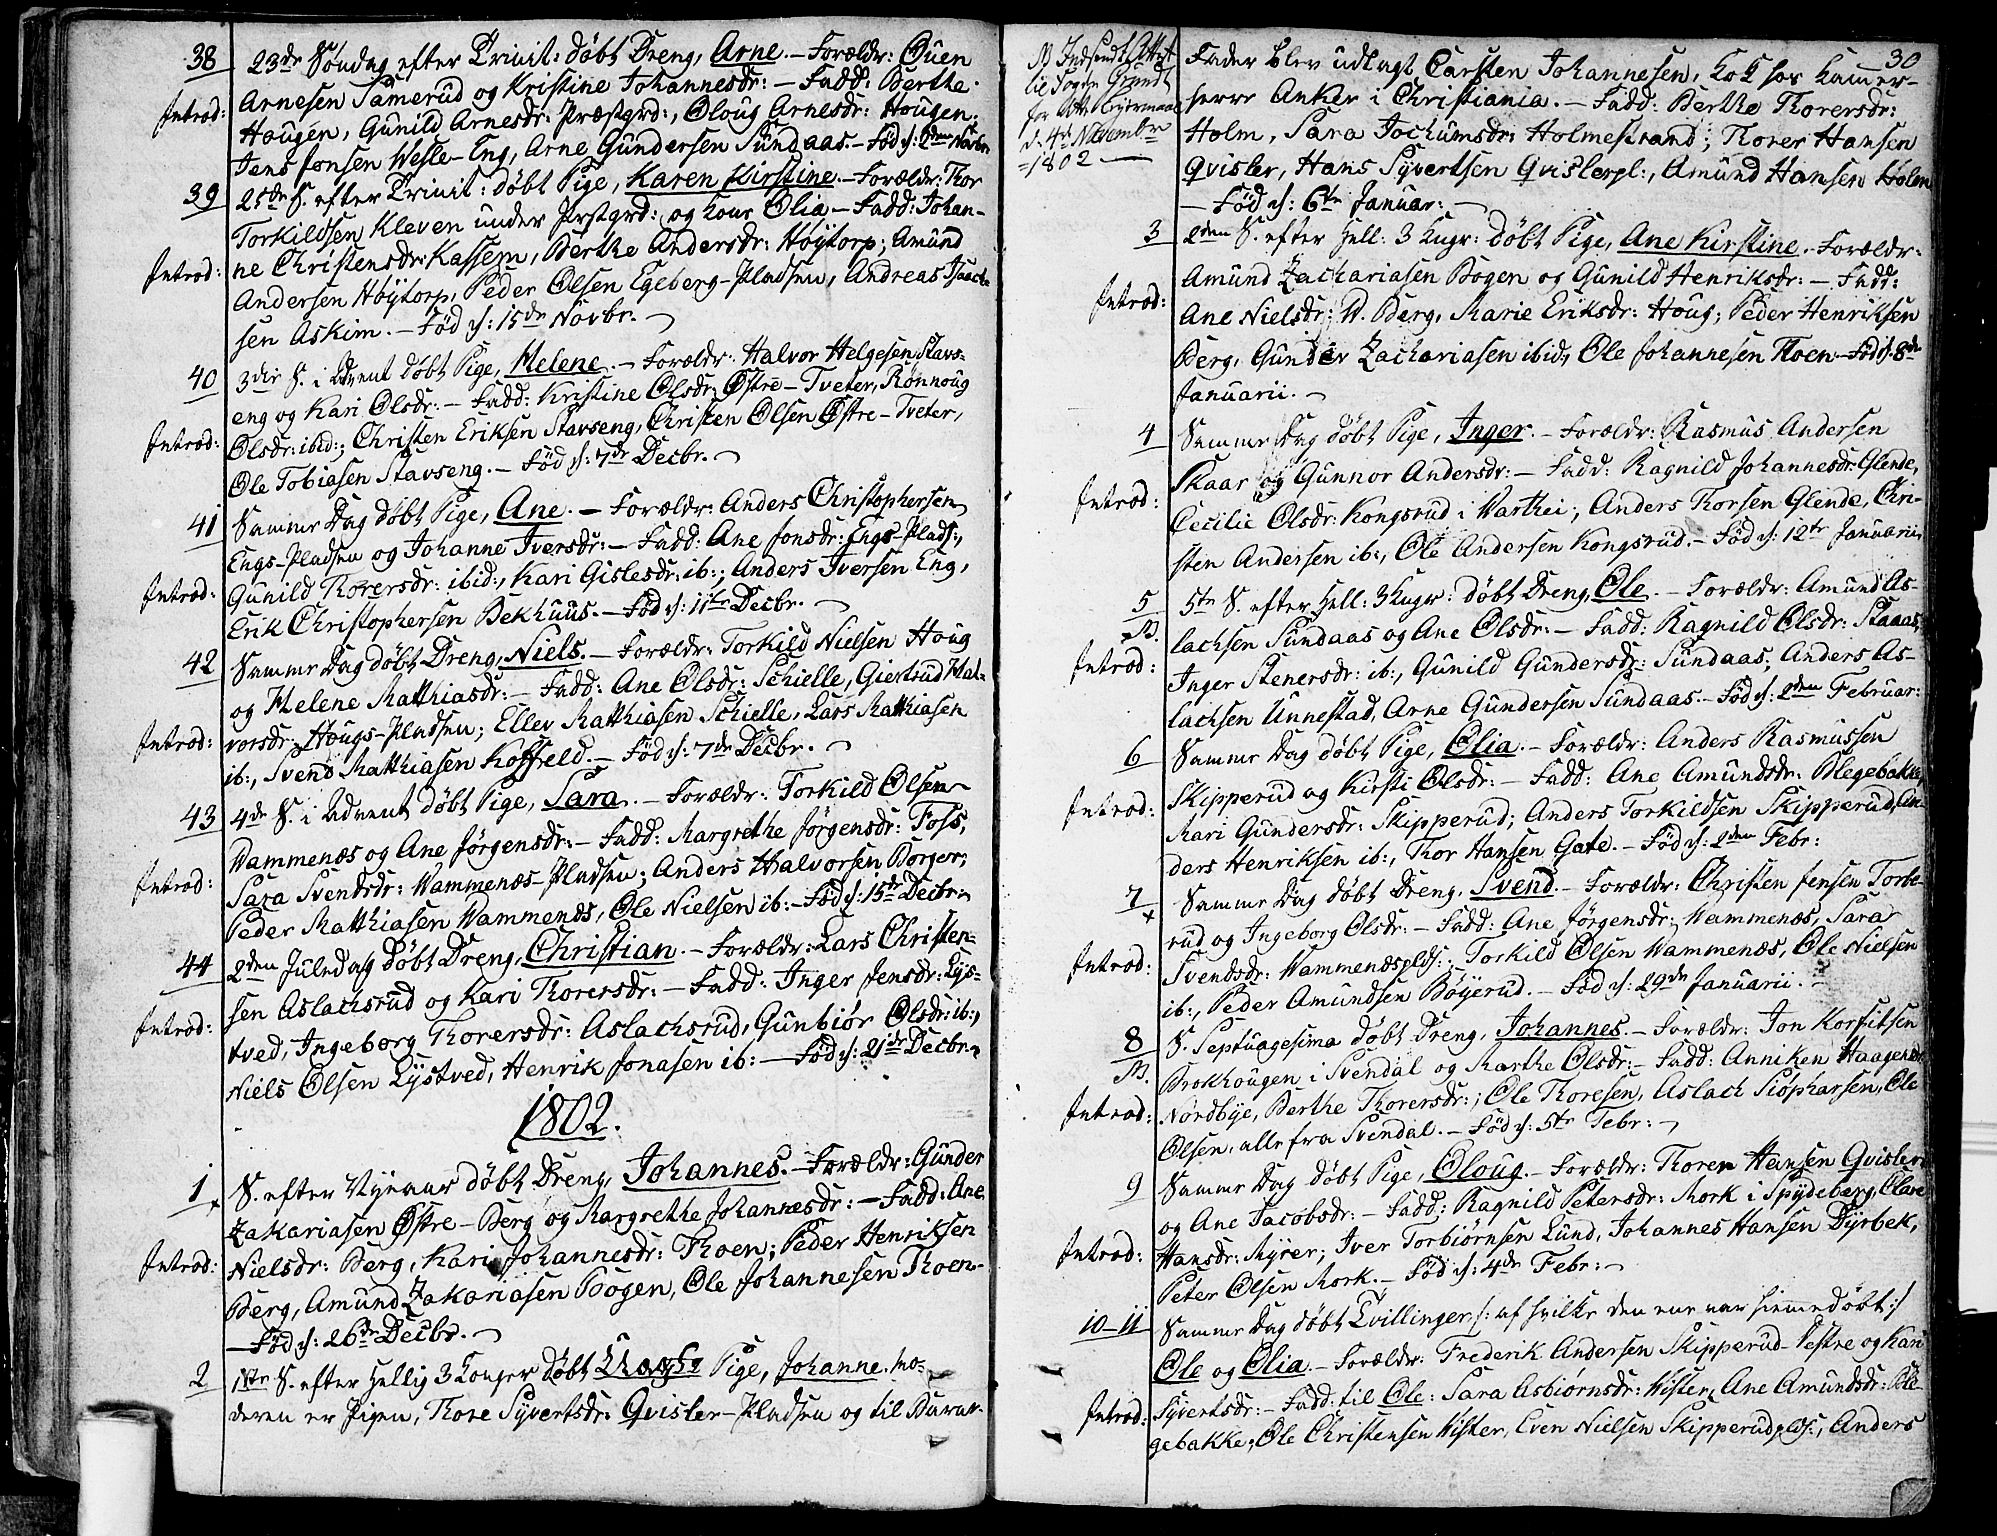 38 23de Søndag efter Trinit: døbt Dreng, Arne. – Forældr: Ouen
Arnesen Samerud og Kristine Johannesdr: – Fadd: Berthe
Introd: Haugen, Gunild Arnesdr: Præstgrd:, Oloug Arnesdr: Hougen;
Jens Jonsen Wesle-Eng, Arne Gundersen Sundaas. – Fød d: 2den Novbr.
39 25de S. efter Trinit: døbt Pige, Karen Kirstine. – Forældr: Thor
Torkildsen Kleven under Prstgrd: og Kone Olia – Fadd: Johan-
Introd: ne Christensdr: Kassem, Berthe Andersdr: Høytorp; Amund
Andersen Høytorp, Peder Olsen Egeberg-Pladsen, Andreas Isach-
sen Askim. – Fød d: 15de Novbr. –
40 3die S. i Advent døbt Pige, Helene. – Forældr: Halvor Helgesen Stavs-
eng og Kari Olsdr: – Fadd: Kristine Olsdr: Østre-Tveter, Rønnoug
Introd: Olsdr: ibid:; Christen Eriksen Stavseng, Christen Olsen Østre-Tveter,
Ole Tobiasen Stavseng. – Fød d: 7de Decbr. –
41 Samme Dag døbt Pige, Ane. – Forældr: Anders Christophersen
Engs-Pladsen og Johanne Iversdr: – Fadd: Ane Jonsdr: Engs-Plads:,
Introd: Gunild Thorersdr: ibid:, Kari Gislesdr: ib:; Anders Iversen Eng,
Erik Christophersen Bekhuus. – Fød d: 11te Decbr. –
42 Samme Dag døbt Dreng, Niels. – Forældr: Torkild Nielsen Houg
og Helene Matthiasdr: – Fadd: Ane Olsdr: Schielle, Giertrud Hal-
Introd: vorsdr: Hougs-Pladsen; Ellev Matthiasen Schielle, Lars Matthiasen
ib:, Svend Matthiasen Koffeld. – Fød d: 7de Decbr. –
43 4de S. i Advent døbt Pige, Sara. – Forældr: Torkild Olsen
Wammenæs og Ane Jørgensdr: – Fadd: Margrethe Jørgensdr: Foss,
Introd: Sara Svendsdr: Wammenæs-Pladsen; Anders Halvorsen Borger,
Peder Matthiasen Wammenæs, Ole Nielsen ib: – Fød d: 15de Decbr. –
44 2den Juledag døbt Dreng, Christian. – Forældr: Lars Christen-
sen Aslachsrud og Kari Thorersdr: – Fadd: Inger Jensdr: Lys-
Introd: tved, Ingeborg Thorersdr: Aslachsrud, Gunbiør Olsdr: ib:,
Niels Olsen Lystved, Henrik Jonasen ib: – Fød d: 21de Decbr. –
1802.
1 S. efter Nyeaar døbt Dreng, Johannes. – Forældr: Gunder
Zakariasen Østre-Berg og Margrethe Johannesdr: – Fadd: Ane
Introd: Nielsdr: Berg, Kari Johannesdr: Thoen; Peder Henriksen
Berg, Amund Zakariasen Bogen, Ole Johannesen Thoen.
– Fød d: 26de Decbr. –
2 1ste S. efter Hellig 3 Konger døbt Pige, Johanne. Mo-
deren er Pigen, Thore Syvertsdr: Qvisler-Pladsen og til Barne-
30
N Indsendt Attest
til Fogden
for
d. 4de Novembr
1802 –
Fader blev udlagt Carsten Johannesen, Kok hos Kamer-
herre Anker i Christiania. – Fadd: Berthe Thorersdr:
Holm, Sara Jochumsdr: Holmestrand; Thorer Hansen
Qvisler, Hans Syvertsen Qvislerpl:, Amund Hansen Holen
– Fød d: 6te Januar: –
3 2den S. efter Hell: 3 Kugr: døbt Pige, Ane Kirstine. – Forældr:
Amund Zachariasen Bogen og Gunild Henriksdr: – Fadd:
Introd: Ane Nielsdr: W. Berg, Marie Eriksdr: Houg; Peder Henriksen
Berg, Gunder Zachariasen ibid:, Ole Johannesen Thoen. – Fød d: 8de
Januarii. –
4 Samme Dag døbt Pige, Inger. – Forældr: Rasmus Andersen
Skaar og Gunnor Andersdr: – Fadd: Ragnild Johannesdr: Glende,
Introd: Cecilie Olsdr: Kongsrud i Warthei; Anders Thorsen Glende, Chri-
sten Andersen ib:, Ole Andersen Kongsrud. – Fød d: 12te Januarii
5 5te S. efter Hell: 3 Kugr: døbt Dreng, Ole. – Forældr: Amund As-
M. lachsen Sundaas og Ane Olsdr: – Fadd: Ragnild Olsdr: Staaas,
Introd: Inger Stenersdr: ib:, Gunild Gundersdr: Sundaas; Anders As-
lachsen Unnestad, Arne Gundersen Sundaas. – Fød d: 2den Februar:
6 Samme Dag døbt Pige, Olia. – Forældr: Anders Rasmussen
Skipperud og Kirsti Olsdr: – Fadd: Ane Amundsdr: Blegebakke,
Introd: Mari Gundersdr: Skipperud; Anders Torkildsen Skipperud, An-
ders Henriksen ib:, Thor Hansen Gate. – Fød d: 2den Febr:
7 Samme Dag døbt Dreng, Svend. – Forældr: Christen Jensen Torbe-
rud og Ingeborg Olsdr: – Fadd: Ane Jørgensdr: Wammenæs, Sara
Introd: Svendsdr: Wammenæspls:; Torkild Olsen Wammenæs, Ole Nielsen
ib:, Peder Amundsen Bøyerud. – Fød d: 29de Januarii. –
8 S. Septuagesima døbt Dreng, Johannes. – Forældr: Jon Korfitsen
M. Brokhougen i Svendal og Marthe Olsdr: – Fadd: Anniken Haagensdr:
Introd: Nordbye, Berthe Thorersdr:; Ole Thoresen, Aslach Siopharsen, Ole
Olsen, alle fra Svendal. – Fød d: 5te Febr: –
9 Samme Dag døbt Pige, Oloug. – Forældr: Thoren Hansen Qvisler
og Ane Jacobsdr: – Fadd: Ragnild Petersdr: Mork i Spydeberg, Olave
Introd: Hansdr: Myrer; Iver Torbiørnsen Lund, Johannes Hansen Dyrbek,
Peter Olsen Mork. – Fød d: 4de Febr: –
10-11 Samme Dag døbt Tvillinger /: af hvilke den ene var hiemmedøbt :/
Ole og Olia. – Forældr: Frederik Andersen Skipperud-Vestre og Kari
Introd: Syvertsdr: – Fadd: til Ole: Sara Asbiørnsdr: Wister, Ane Amundsdr: Ble-
gebakke; Ole Christensen Wister, Even Nielsen Skipperudplds:, Anders